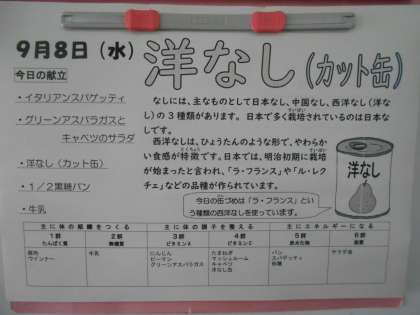 9月8日(水)
洋なし(カット缶)
今日の献立
・イタリアンスパゲッティ
・グリーンアスパラガスと
キャベツのサラダ
・洋なし(カット缶)
・1/2黒糖パン
・牛乳
なしには、主なものとして日本なし、中国なし、西洋なし(洋な
し)の3種類があります。日本で多く栽培されているのは日本な
しです。
西洋なしは、ひょうたんのような形で、やわらか
い食感が特徴です。日本では、明治初期に栽培
が始まったと言われ、「ラ・フランス」や「ル・レク
チェ」などの品種が作られています。
洋なし
今日の缶づめは「ラ・フランス」とい
う種類の西洋なしを使っています。
主に体の組織をつくる 主に体の調子を整える 主にエネルギーになる
1群 2群 3群 4群 5群 6群
たんぱく質 無機質 ビタミンA ビタミンC 炭水化物 脂質
豚肉 牛乳 にんじん たまねぎ パン サラダ油
ウインナー ピーマン マッシュルーム スパゲティ
グリーンアスパラガス キャベツ 砂糖
洋なし缶